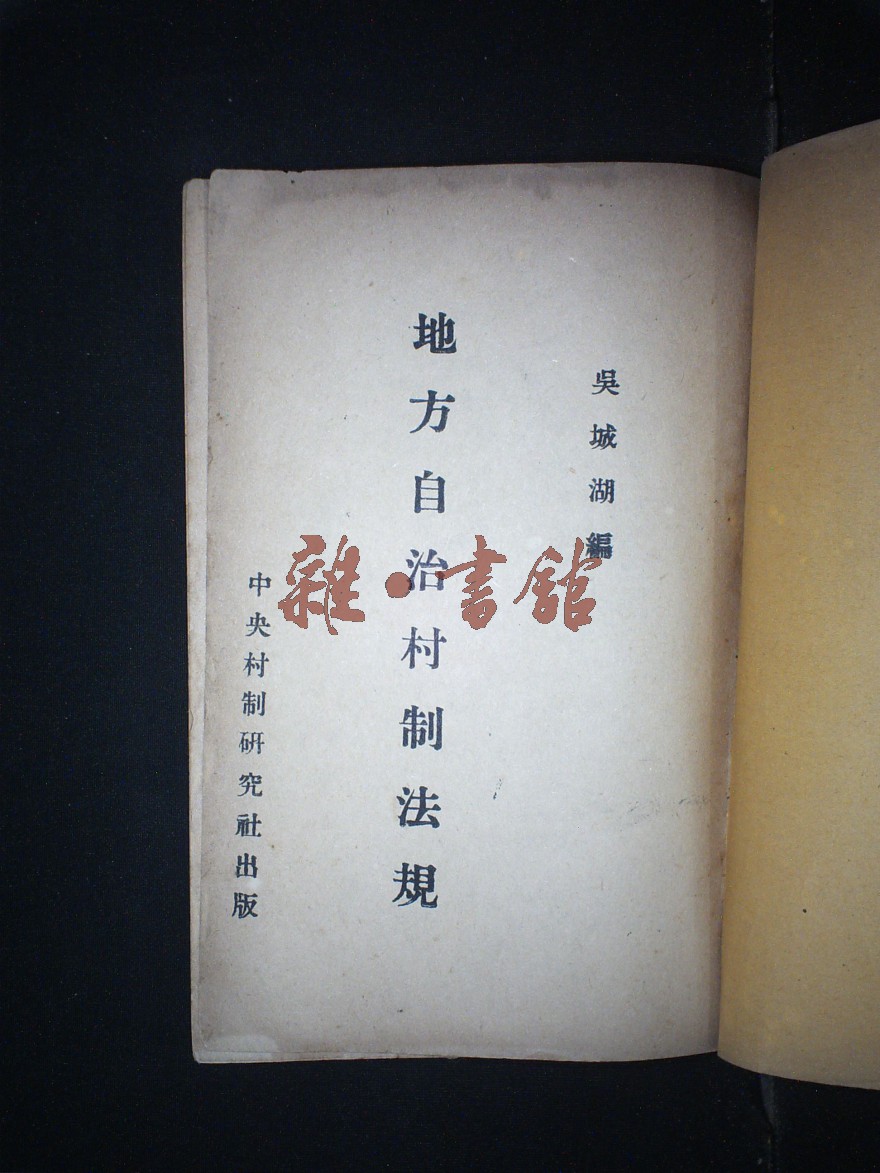 吳城湖編
地方自治村制法規
中央村制研究社出版
雜·書館